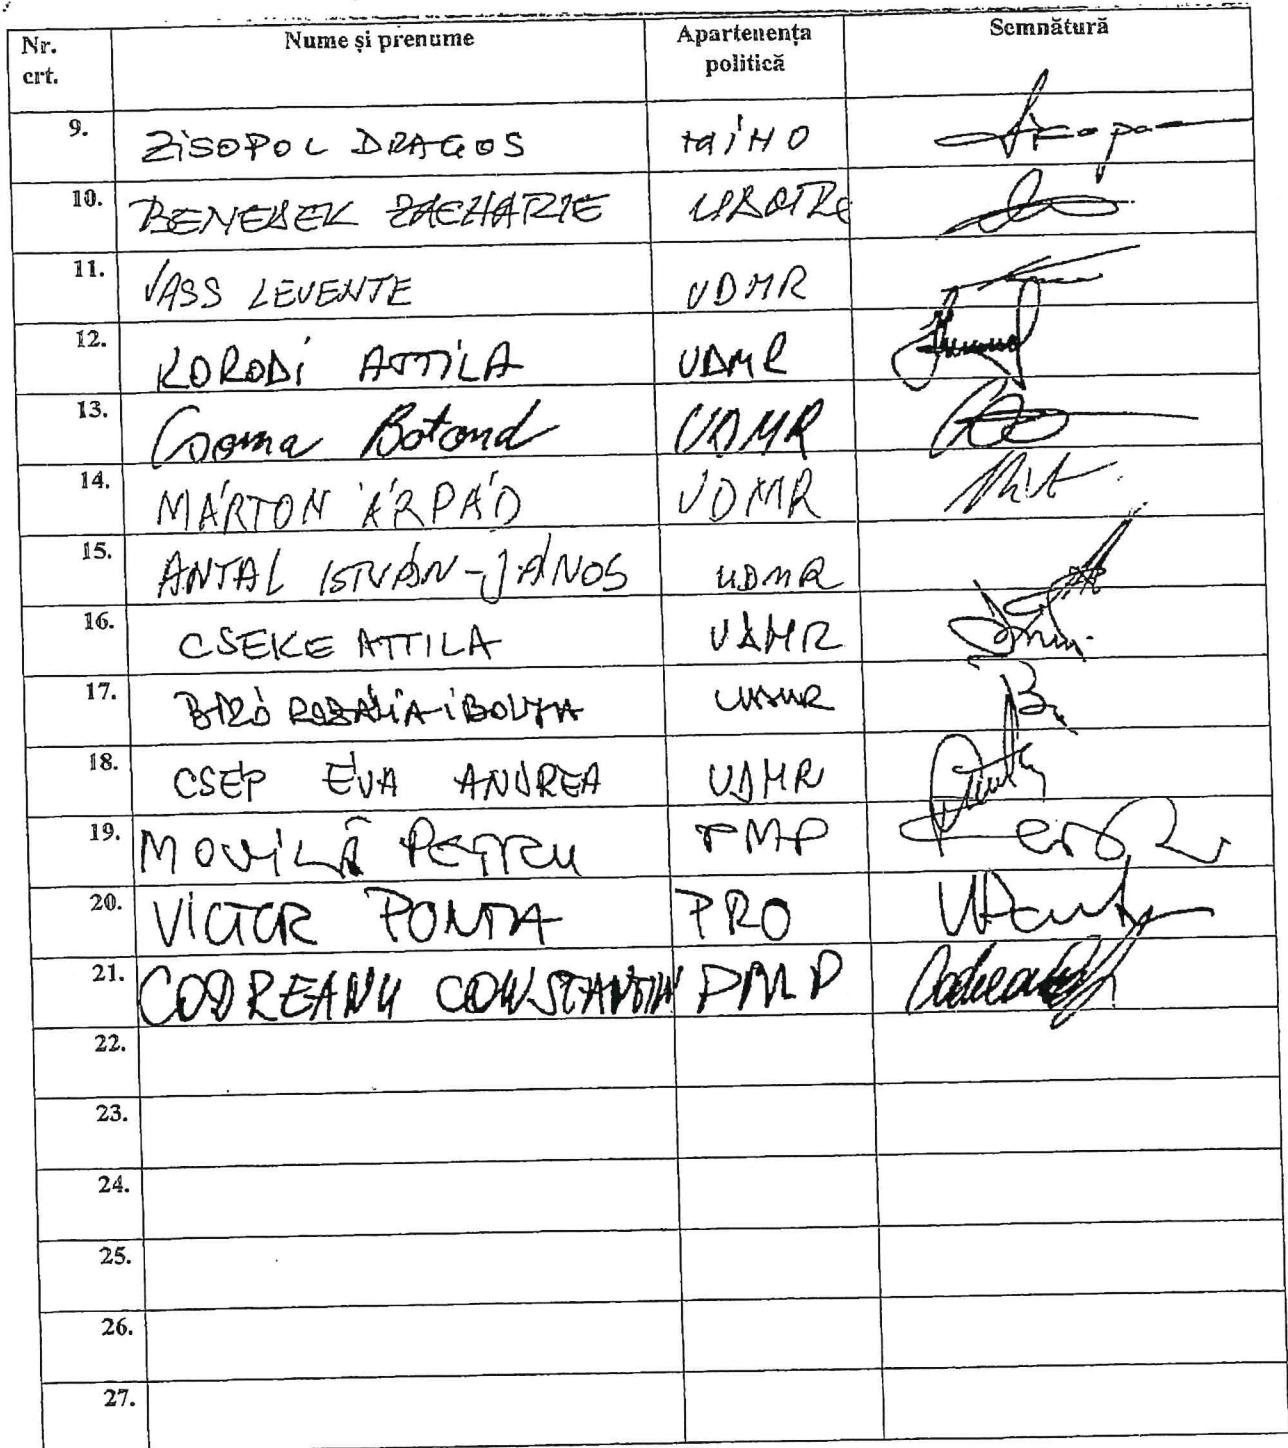 Nr. crt. Nume și prenume Apartenența politică Semnătură
9. ZISOPOL DRAGOS
10. BENEDEK ZACHARIE UDMR
11. VASS LEVENTE UDMR
12. KORODI ATTILA UDMR
13. Csoma Botond UDMR
14. MÁRTON ÁRPÁD UDMR
15. ANTAL ISTVÁN-JÁNOS UDMR
16. CSEKE ATTILA UDMR
17. BIRÓ ROZÁLIA-IBOLYA UDMR
18. CSEP EVA ANDREA UDMR
19. MOVILĂ PETRU PMP
20. VICTOR PONTA PRO
21. CODREANU CONSTANTIN PMP
22.
23.
24.
25.
26.
27.